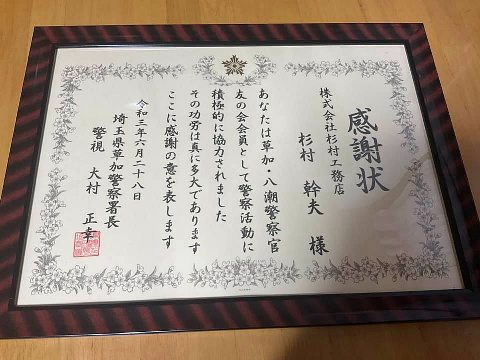 感謝状
株式会社杉村工務店
杉村 幹夫 様
あなたは草加・八潮警察官
友の会会員として警察活動に
積極的に協力されました
その功労は真に多大であります
ここに感謝の意を表します
令和三年六月二十八日
埼玉県草加警察署長
警視 大村 正幸